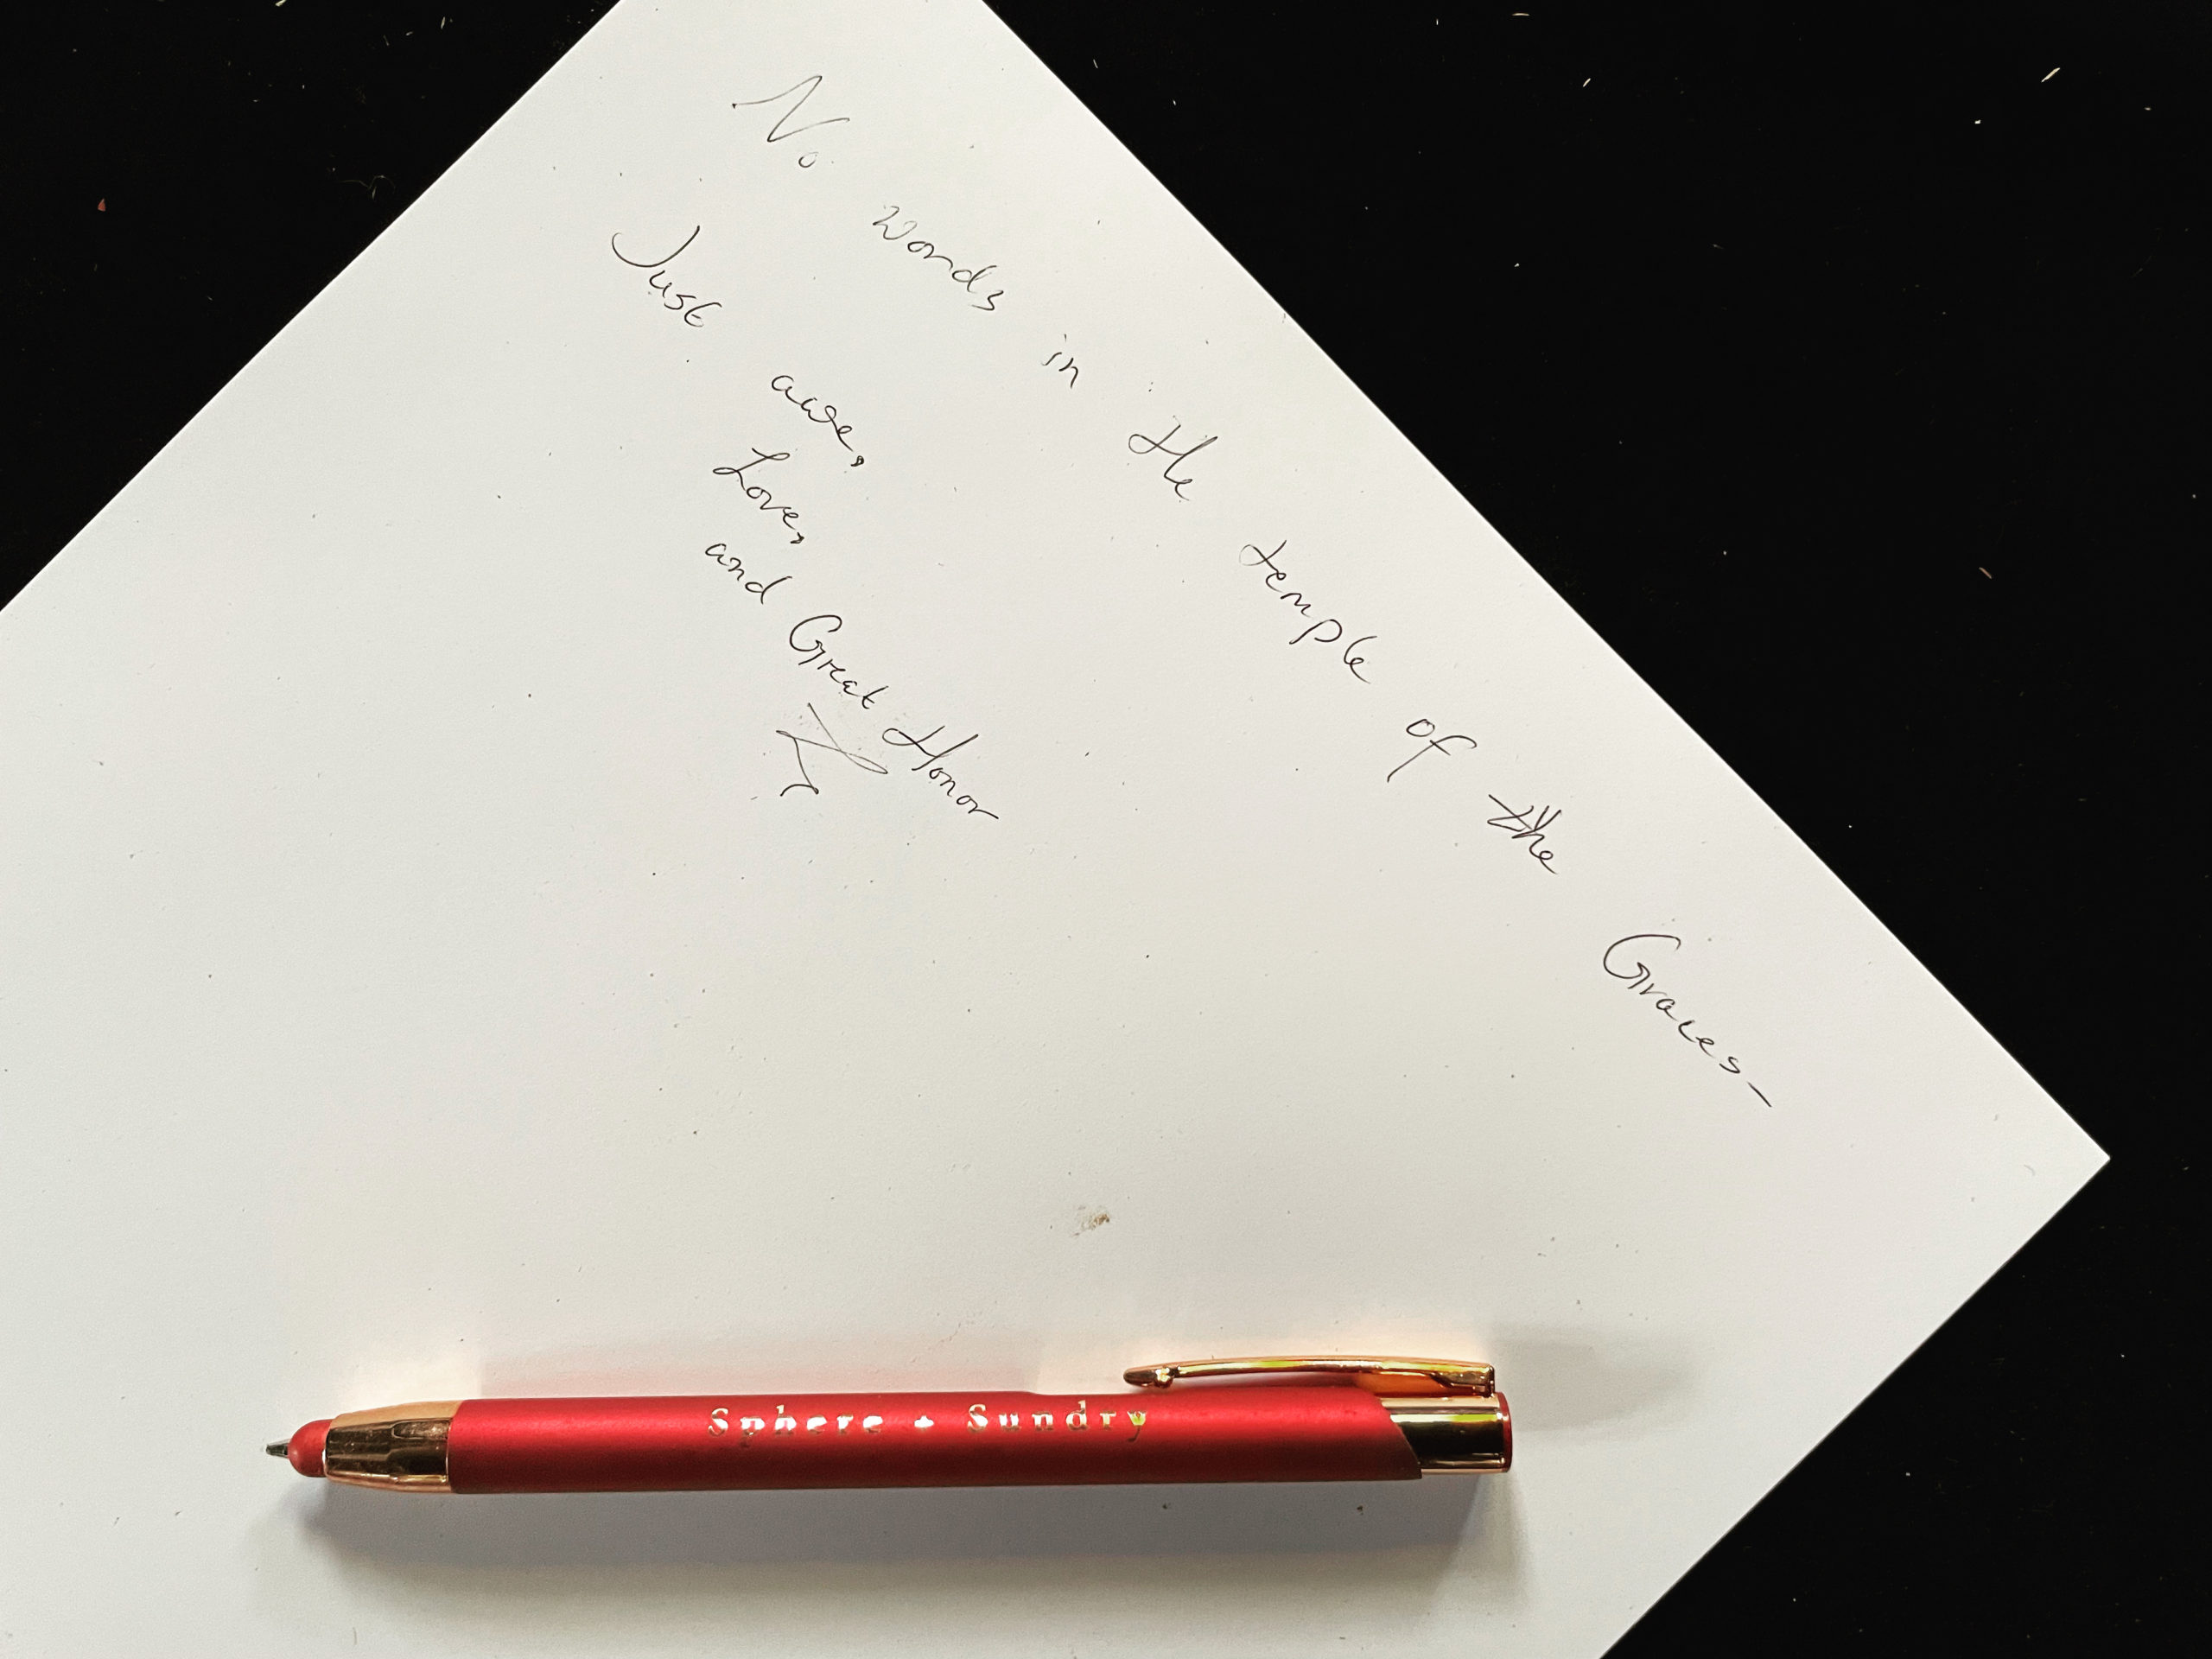 No words in the temple of the Graces—
Just awe,
Love,
and Great Honor
Sphere + Sundry